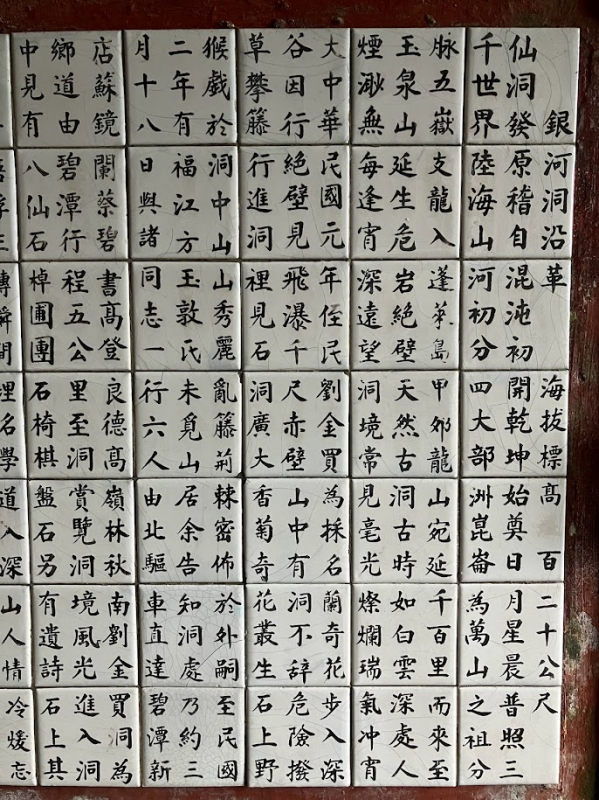 銀河洞沿革 海拔標高 百二十公尺
仙洞發原稽自混沌初開乾坤始奠日月星晨普照三
千世界陸海山河初分四大部洲崑崙為萬山之祖分
脉五嶽支龍入蓬萊島甲郊龍山宛延千百里而來至
玉泉山延生危岩絕壁天然古洞古時如白雲深處人
煙渺無每逢宵深遠望洞境常見毫光燦爛瑞氣冲宵
大中華民國元年侄民劉金買為採名蘭奇花步入深
谷因行絕壁見飛瀑千尺赤壁山中有洞不辞危險撥
草攀籐行進洞裡見石洞廣大香菊奇花叢生石上野
猴戲於洞中山山秀麗亂籐荊棘密佈於外嗣至民國
二年有福江方玉敦氏未覓山居余告知洞處乃約三
月十八日與諸同志一行六人由北驅車直達碧潭新
店蘇鏡闌蔡碧書高登良德高嶺林秋南劉金買洞為
鄉道由碧潭行程五公里至洞賞覽洞境風光進入洞
中見有八仙石棹圃團石椅棋盤石另有遺詩石上其
間理名學道入深山人情冷煖忘